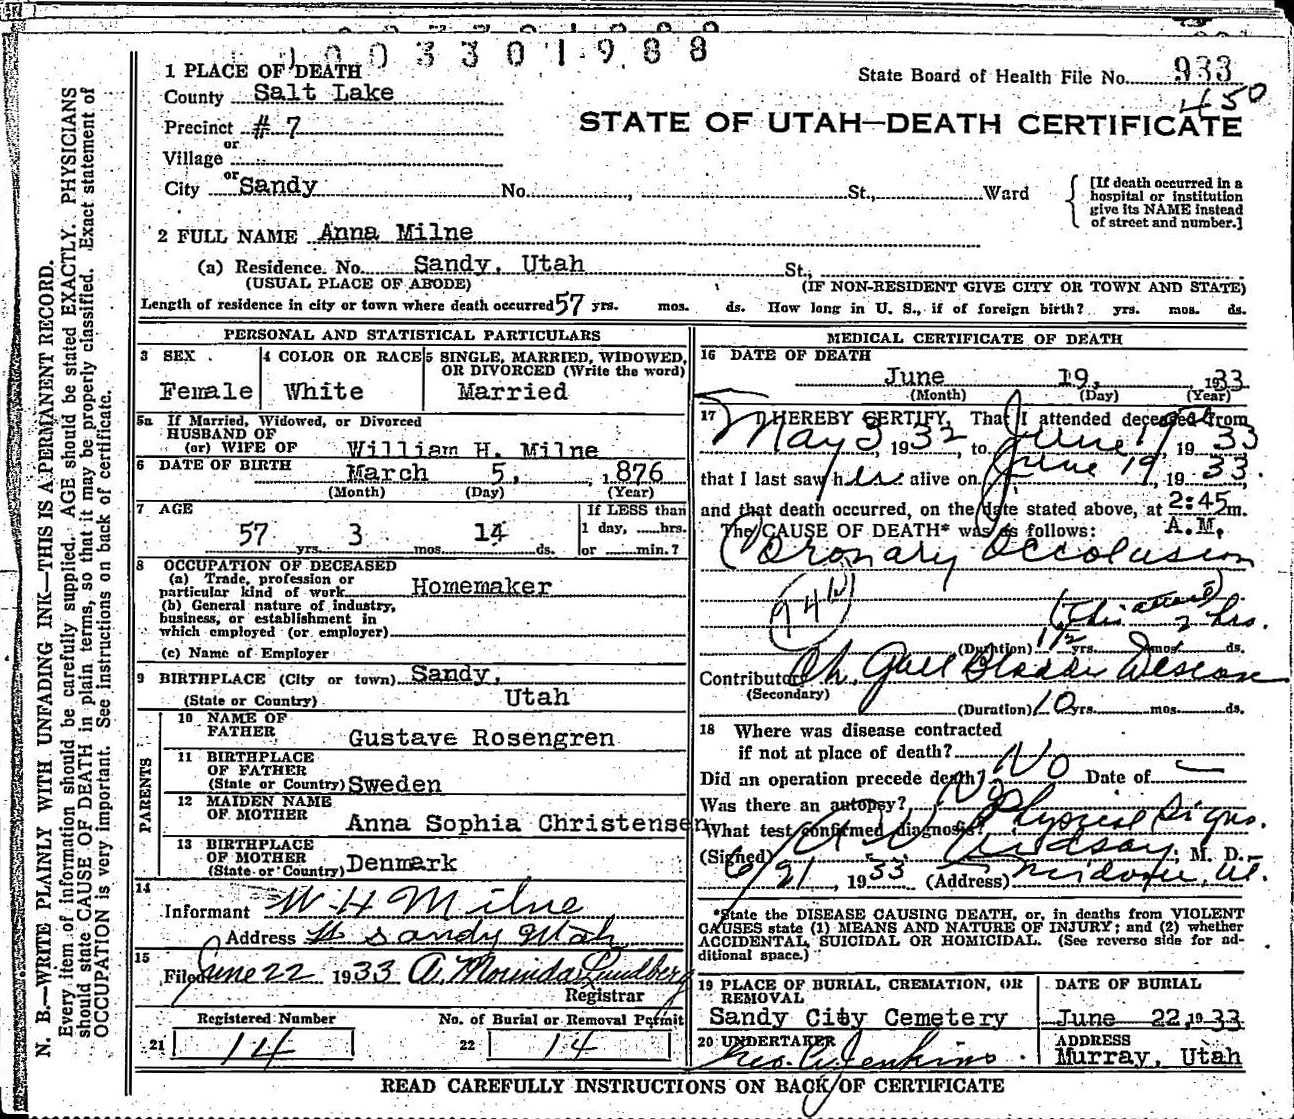 1 0 0 3 3 0 1 9 8 8
1 PLACE OF DEATH
State Board of Health File No. 933
450
County Salt Lake
Precinct # 7
STATE OF UTAH—DEATH CERTIFICATE
or
Village
or
City Sandy No. , St., Ward
[If death occurred in a hospital or institution give its NAME instead of street and number.]
2 FULL NAME Anna Milne
(a) Residence. No. Sandy, Utah St.,
(USUAL PLACE OF ABODE) (IF NON-RESIDENT GIVE CITY OR TOWN AND STATE)
Length of residence in city or town where death occurred 57 yrs. mos. ds. How long in U. S., if of foreign birth? yrs. mos. ds.
PERSONAL AND STATISTICAL PARTICULARS
3 SEX
Female
4 COLOR OR RACE
White
5 SINGLE, MARRIED, WIDOWED, OR DIVORCED (Write the word)
Married
5a If Married, Widowed, or Divorced
HUSBAND OF
(or) WIFE OF William H. Milne
6 DATE OF BIRTH March 5, , 1876
(Month) (Day) (Year)
7 AGE
57 yrs. 3 mos. 14 ds.
If LESS than
1 day, hrs.
or min.?
8 OCCUPATION OF DECEASED
(a) Trade, profession or
particular kind of work Homemaker
(b) General nature of industry,
business, or establishment in
which employed (or employer)
(c) Name of Employer
9 BIRTHPLACE (City or town) Sandy,
(State or Country) Utah
PARENTS
10 NAME OF
FATHER Gustave Rosengren
11 BIRTHPLACE
OF FATHER
(State or Country) Sweden
12 MAIDEN NAME
OF MOTHER Anna Sophia Christensen
13 BIRTHPLACE
OF MOTHER
(State or Country) Denmark
14
Informant W H Milne
Address Sandy Utah
15
Filed June 22 1933 A. Morinda Lundberg
Registrar
Registered Number
21 14
No. of Burial or Removal Permit
22 14
MEDICAL CERTIFICATE OF DEATH
16 DATE OF DEATH
June 19, , 1933
(Month) (Day) (Year)
17 I HEREBY CERTIFY, That I attended deceased from
May 3, 1932, to June 19, 1933
that I last saw her alive on June 19, 1933,
and that death occurred, on the date stated above, at 2:45 m.
A.M.
The CAUSE OF DEATH* was as follows:
Coronary Occolusion
94
(This attack)
2 hrs.
(Duration) 1 1/2 yrs. mos. ds.
Contributory Ch. Gall Bladder Disease
(Secondary)
(Duration) 10 yrs. mos. ds.
18 Where was disease contracted
if not at place of death?
Did an operation precede death? No Date of —
Was there an autopsy? No
What test confirmed diagnosis? Physical Signs.
(Signed) A W Lindsay, M. D.
6/21, 1933 (Address) Midvale, Ut.
*State the DISEASE CAUSING DEATH, or, in deaths from VIOLENT
CAUSES state (1) MEANS AND NATURE OF INJURY; and (2) whether
ACCIDENTAL, SUICIDAL OR HOMICIDAL. (See reverse side for ad-
ditional space.)
19 PLACE OF BURIAL, CREMATION, OR
REMOVAL
Sandy City Cemetery
DATE OF BURIAL
June 22, 1933
20 UNDERTAKER
Geo. W. Jenkins
ADDRESS
Murray, Utah
READ CAREFULLY INSTRUCTIONS ON BACK OF CERTIFICATE
N. B.—WRITE PLAINLY WITH UNFADING INK—THIS IS A PERMANENT RECORD.
Every item of information should be carefully supplied. AGE should be stated EXACTLY. PHYSICIANS
should state CAUSE OF DEATH in plain terms, so that it may be properly classified. Exact statement of
OCCUPATION is very important. See instructions on back of certificate.